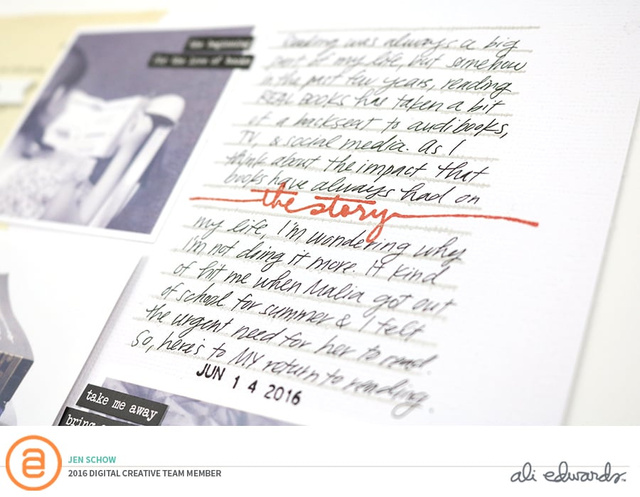 the beginning
for the love of books
Reading was always a big
part of my life, but somehow
in the past few years, reading
REAL BOOKS has taken a bit
of a backseat to audiobooks,
TV, & social media. As I
think about the impact that
books have always had on
the story
my life, I'm wondering why
I'm not doing it more. It kind
of hit me when Malia got out
of school for summer & I felt
the urgent need for her to read.
So, here's to MY return to reading.
JUN 14 2016
take me away
bring
a
JEN SCHOW
2016 DIGITAL CREATIVE TEAM MEMBER
ali edwards